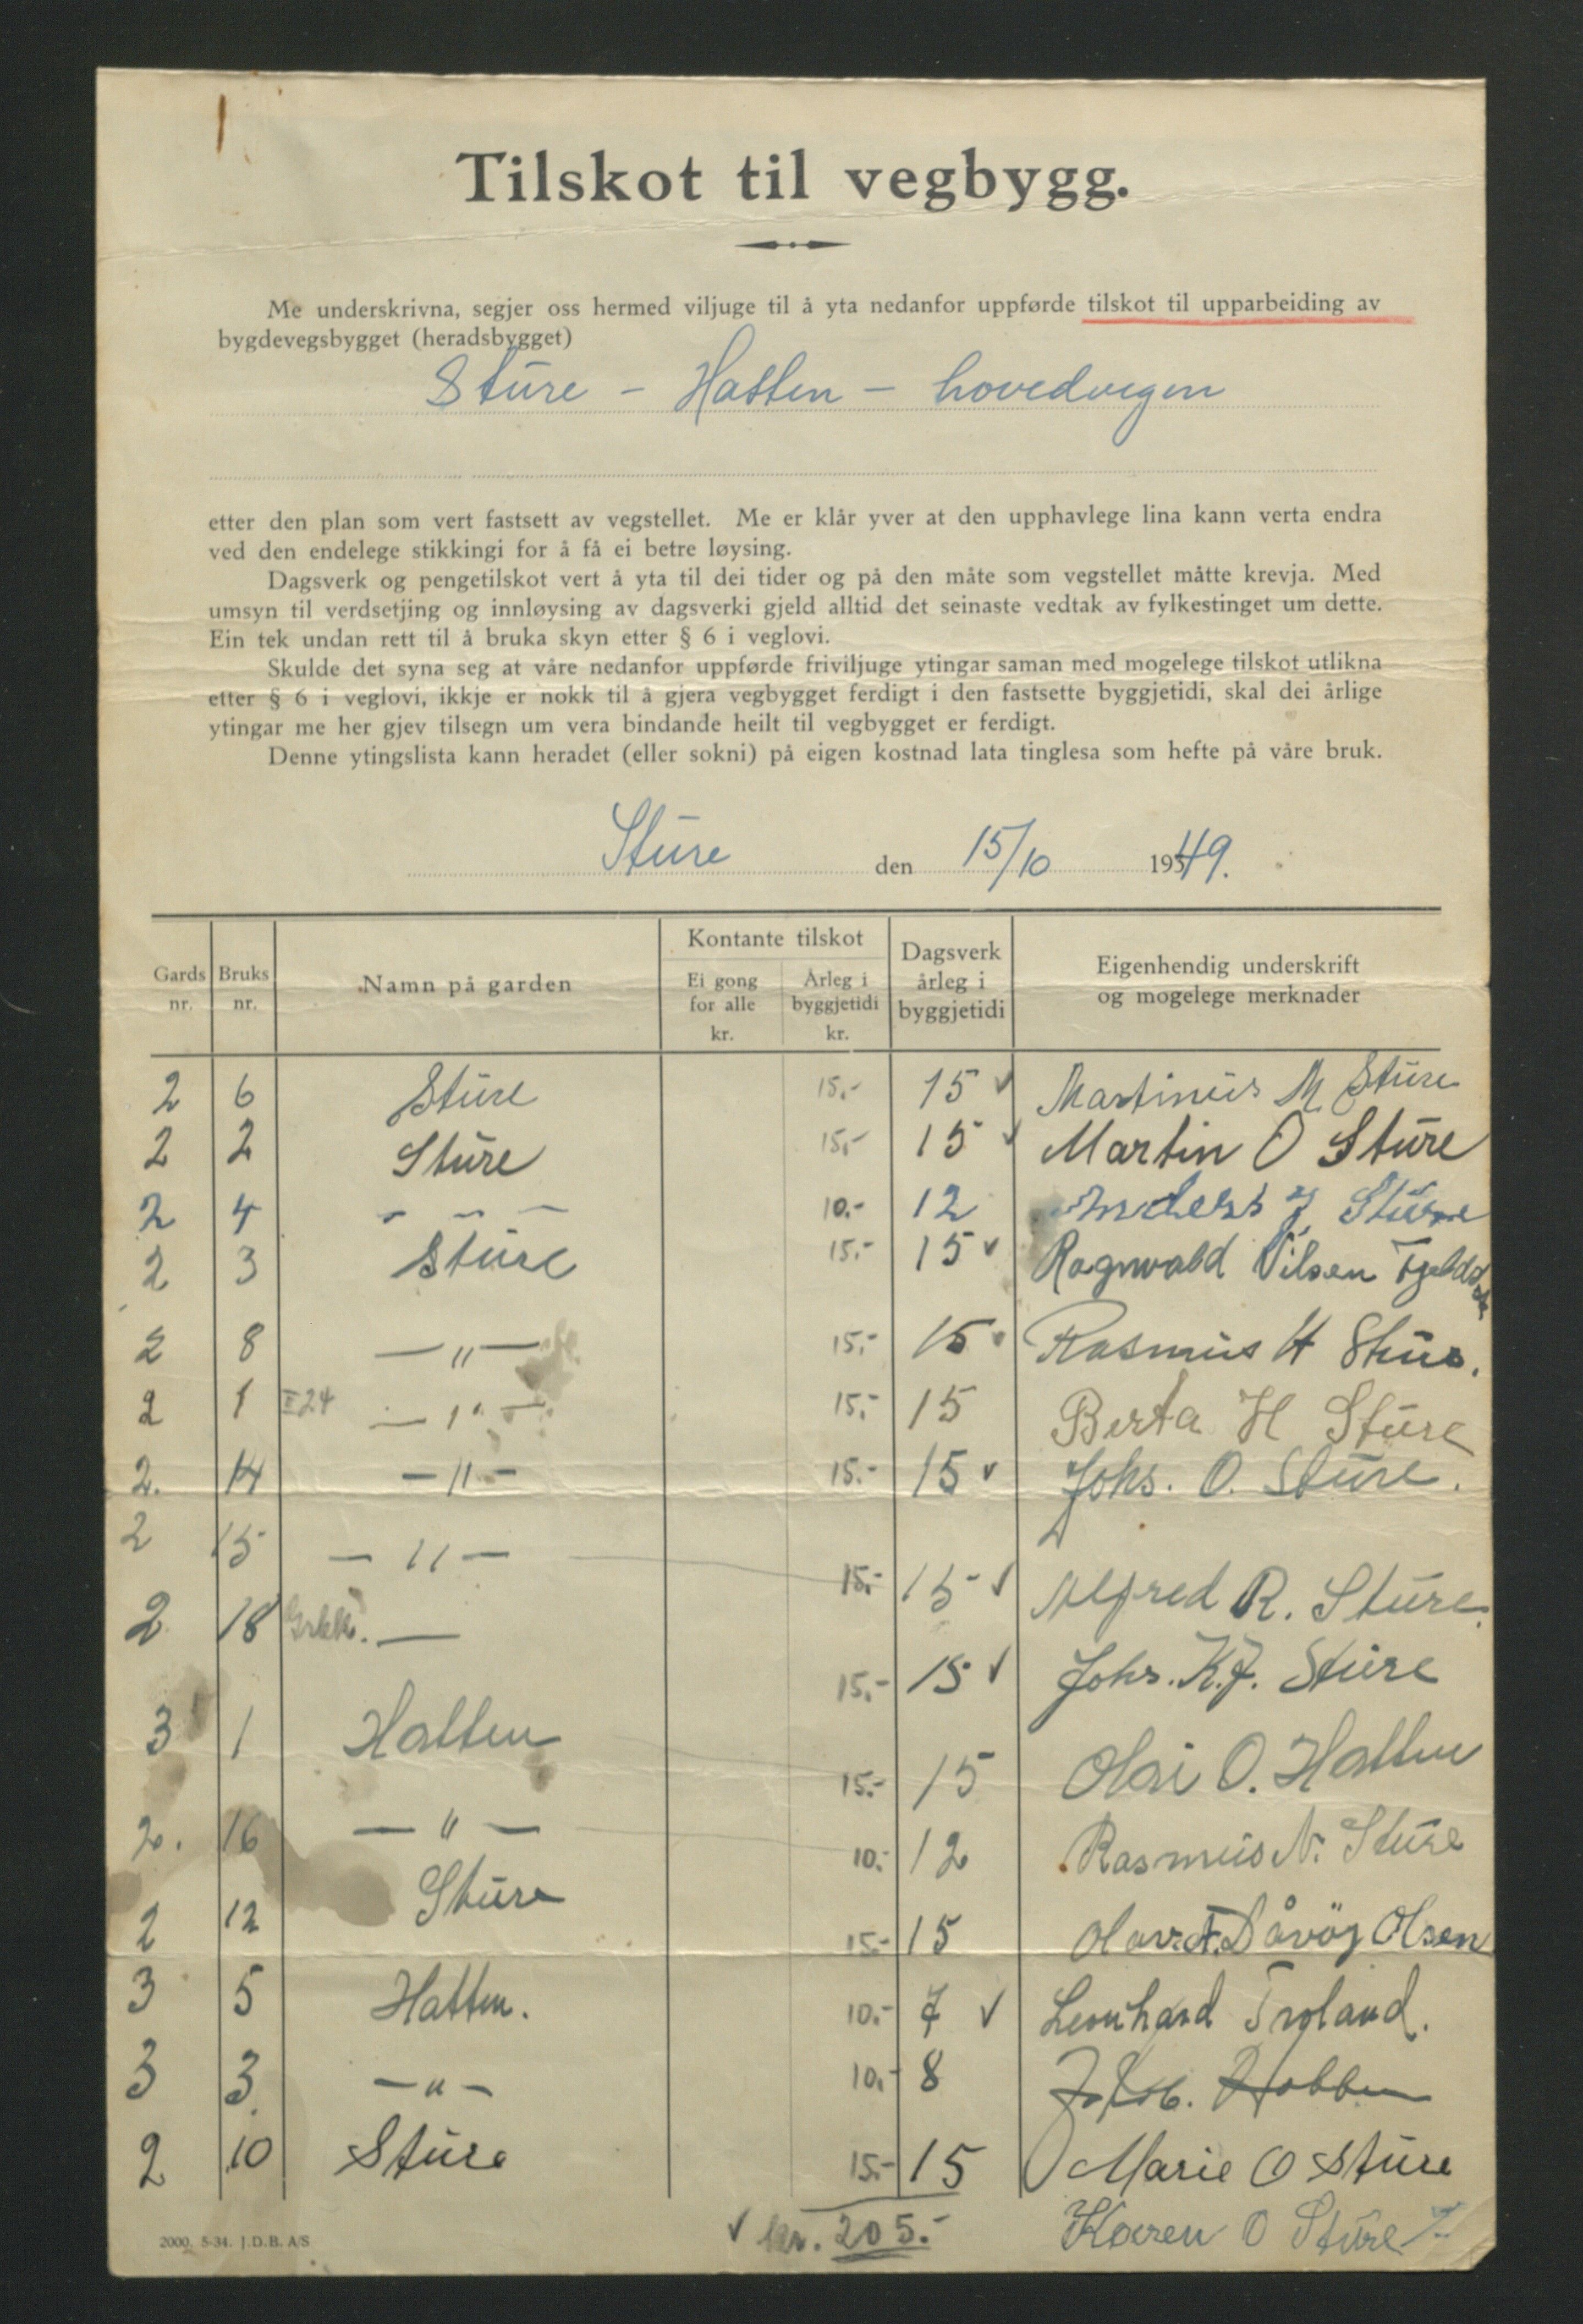 Tilskot til vegbygg.
Me underskrivna, segjer oss hermed viljuge til å yta nedanfor uppførde tilskot til upparbeiding av
bygdevegsbygget (heradsbygget)
Sture - Hatten - hovedvegen
etter den plan som vert fastsett av vegstellet. Me er klår yver at den upphavlege lina kann verta endra
ved den endelege stikkingi for å få ei betre løysing.
Dagsverk og pengetilskot vert å yta til dei tider og på den måte som vegstellet måtte krevja. Med
umsyn til verdsetjing og innløysing av dagsverki gjeld alltid det seinaste vedtak av fylkestinget um dette.
Ein tek undan rett til å bruka skyn etter § 6 i veglovi.
Skulde det syna seg at våre nedanfor uppførde friviljuge ytingar saman med mogelege tilskot utlikna
etter § 6 i veglovi, ikkje er nokk til å gjera vegbygget ferdigt i den fastsette byggjetidi, skal dei årlige
ytingar me her gjev tilsegn um vera bindande heilt til vegbygget er ferdigt.
Denne ytingslista kann heradet (eller sokni) på eigen kostnad lata tinglesa som hefte på våre bruk.
Sture den 15/10 1949.
Gards nr. Bruks nr. Namn på garden Kontante tilskot Ei gong for alle kr. Årleg i byggjetidi kr. Dagsverk årleg i byggjetidi Eigenhendig underskrift og mogelege merknader
2 6 Sture 15.- 15 ✓ Martinus M Sture
2 2 Sture 15.- 15 ✓ Martin O Sture
2 4 - - - 10.- 12 Anders J Sture
2 3 Sture 15.- 15 ✓ Ragnvald Nilsen
2 8 - " - 15.- 15 ✓ Rasmus H Sture.
2 1 - " - 15.- 15 Berta H Sture
2. 14 - " - 15.- 15 ✓ Johs. O. Sture.
2 15 - " - 15.- 15 ✓ Alfred R. Sture.
2 18 - 15.- 15 ✓ Johs. K.J. Sture
3 1 Hatten 15.- 15 Olai O. Hatten
2. 16 - " - 10.- 12 Rasmus N. Sture
2 12 Sture 15.- 15 Olav Olsen
3 5 Hatten. 10.- 7 ✓ Leonhard Troland.
3 3 - " - 10.- 8
2 10 Sture 15.- 15 Marie O Sture
✓ kr. 205.- Karen O Sture
2000. 5-34. J.D.B. A/S